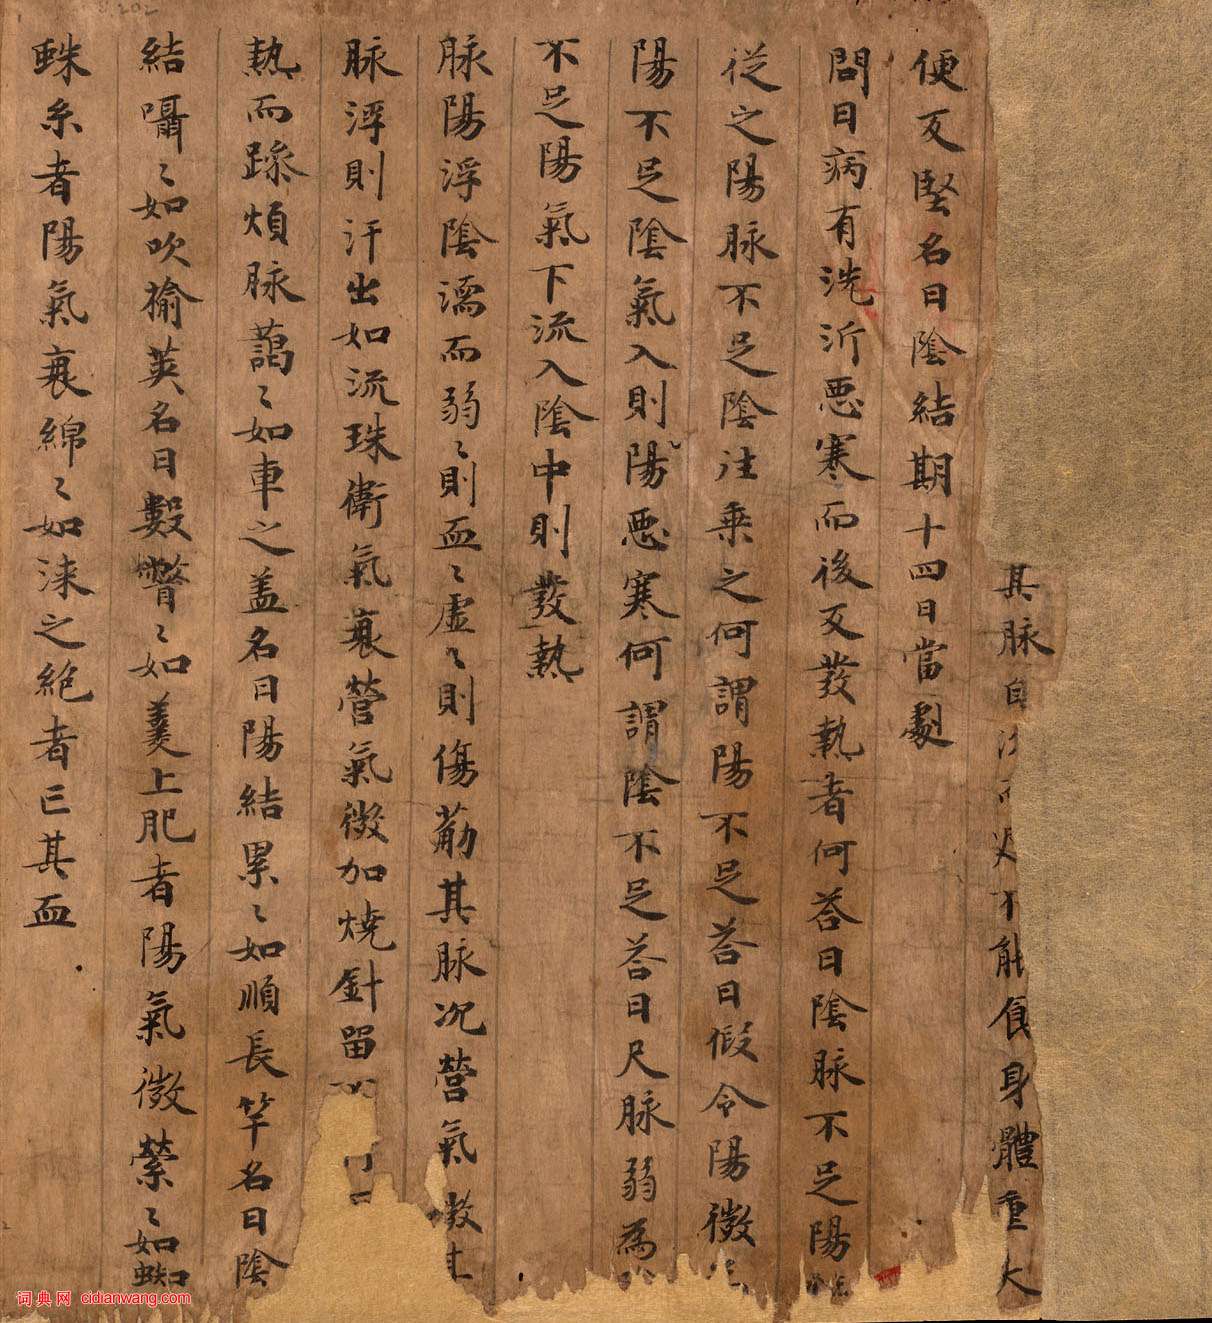 其脉自沉而遅不能食身體重大
便反堅名曰陰結期十四日當劇
問曰病有洗沂惡寒而後反發熱者何荅曰陰脉不足陽
從之陽脉不足陰往乗之何謂陽不足荅曰假令陽微
陽不足陰氣入則陽惡寒何謂陰不足荅曰尺脉弱為
不足陽氣下流入陰中則發熱
脉陽浮陰濡而弱〻則血〻虛〻則傷筋其脉况營氣微
脉浮則汗出如流珠衛氣衰營氣微加燒針留
熱而躁煩脉藹〻如車之盖名曰陽結累〻如順長竿名曰陰
結囁〻如吹揄莢名曰數瞥〻如羹上肥者陽氣微縈〻如蜘
蛛糸者陽氣衰綿〻如涑之絶者亡其血
S.202
词典网 cidianwang.com